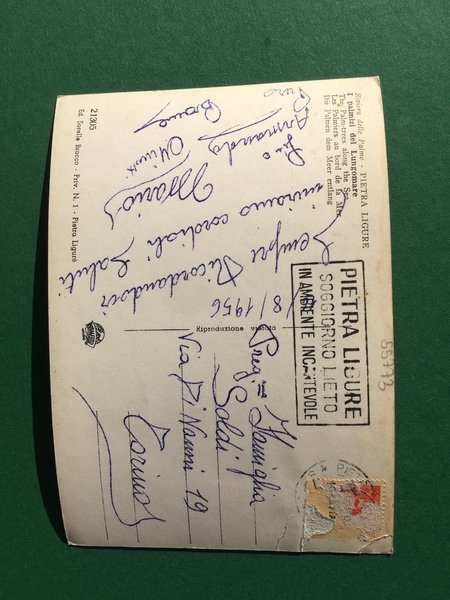 Riviera delle Palme - PIETRA LIGURE
I palmizi del Lungomare
The Palm-trees along the Sea
Les Palmiers au bord de la Mer
Die Palmen dem Meer entlang
/8/1956
Sempre Ricordandovi
inviamo cordiali Saluti
Mario
Pino
Armando
PIETRA LIGURE
SOGGIORNO LIETO
IN AMBIENTE INCANTEVOLE
55773
Riproduzione vietata
Preg.ma Famiglia
Soldi
Via Di Nanni 19
Torino
21305
Ed. Sorelle Bracco - Priv. N. 1 - Pietra Ligure